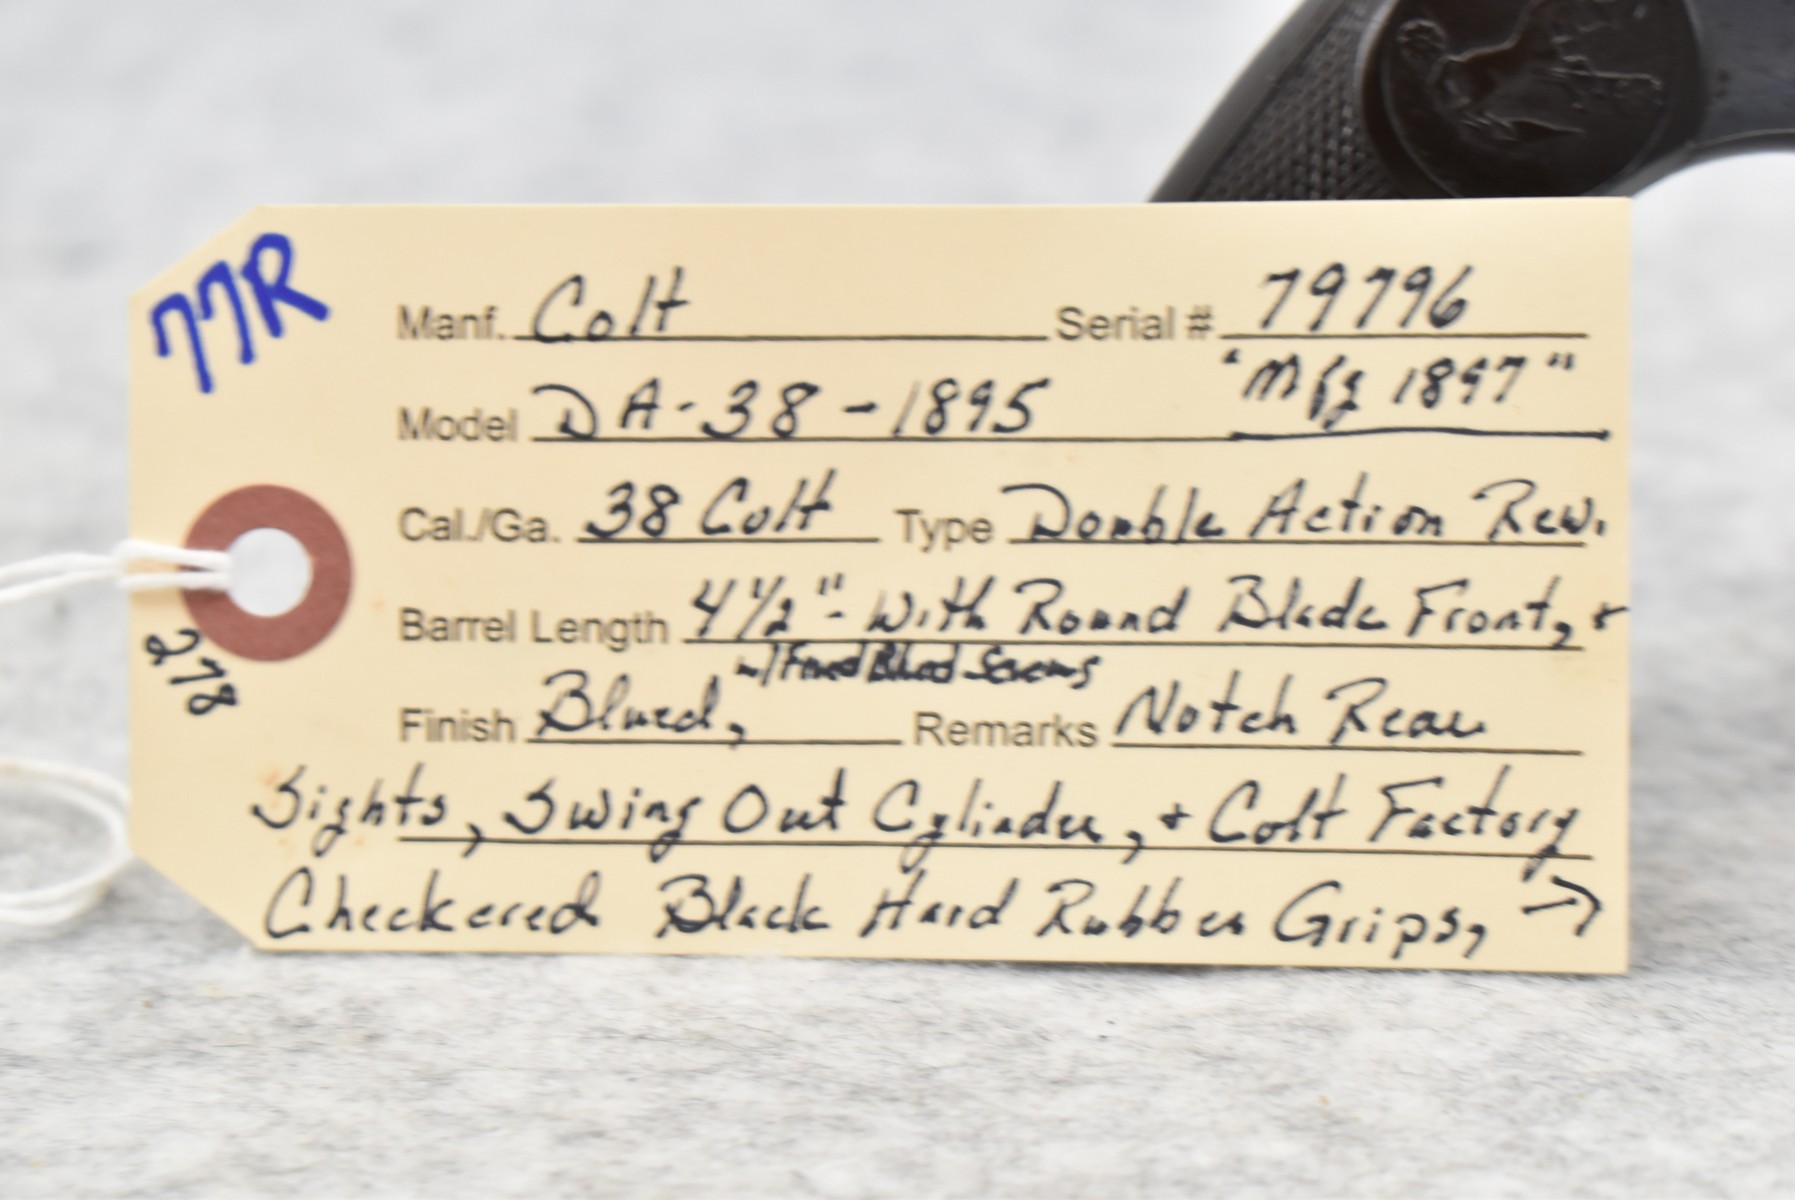 77R
Manf. Colt Serial # 79796
"Mfg 1897"
Model DA-38-1895
Cal./Ga. 38 Colt Type Double Action Rev.
Barrel Length 4 1/2"- With Round Blade Front, +
w/ Fired Blued Screws
Finish Blued, Remarks Notch Rear
Sights, Swing Out Cylinder, + Colt Factory
Checkered Black Hard Rubber Grips, →
278